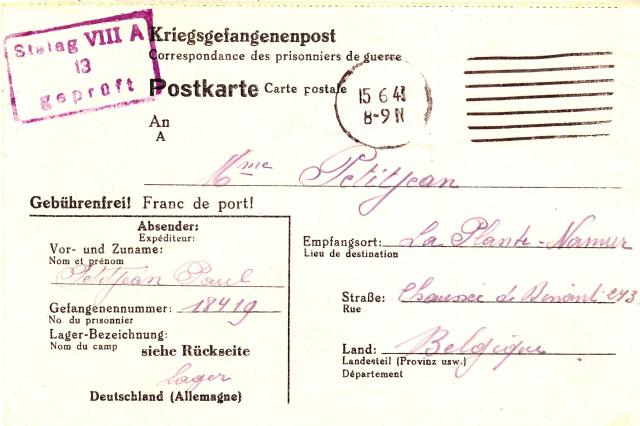 Stalag VIII A
13
geprüft
Kriegsgefangenenpost
Correspondance des prisonniers de guerre
Postkarte Carte postale
15 6 41
8-9 N
An
A
Mme Petitjean
Gebührenfrei! Franc de port!
Absender:
Expéditeur:
Vor- und Zuname:
Nom et prénom
Petitjean Paul
Gefangenennummer: 18419
No. du prisonnier
Lager-Bezeichnung:
Nom du camp
siehe Rückseite
Lager
Deutschland (Allemagne)
Empfangsort: La Plante-Namur
Lieu de destination
Straße: de 243
Rue
Land: Belgique
Landesteil (Provinz usw.)
Département